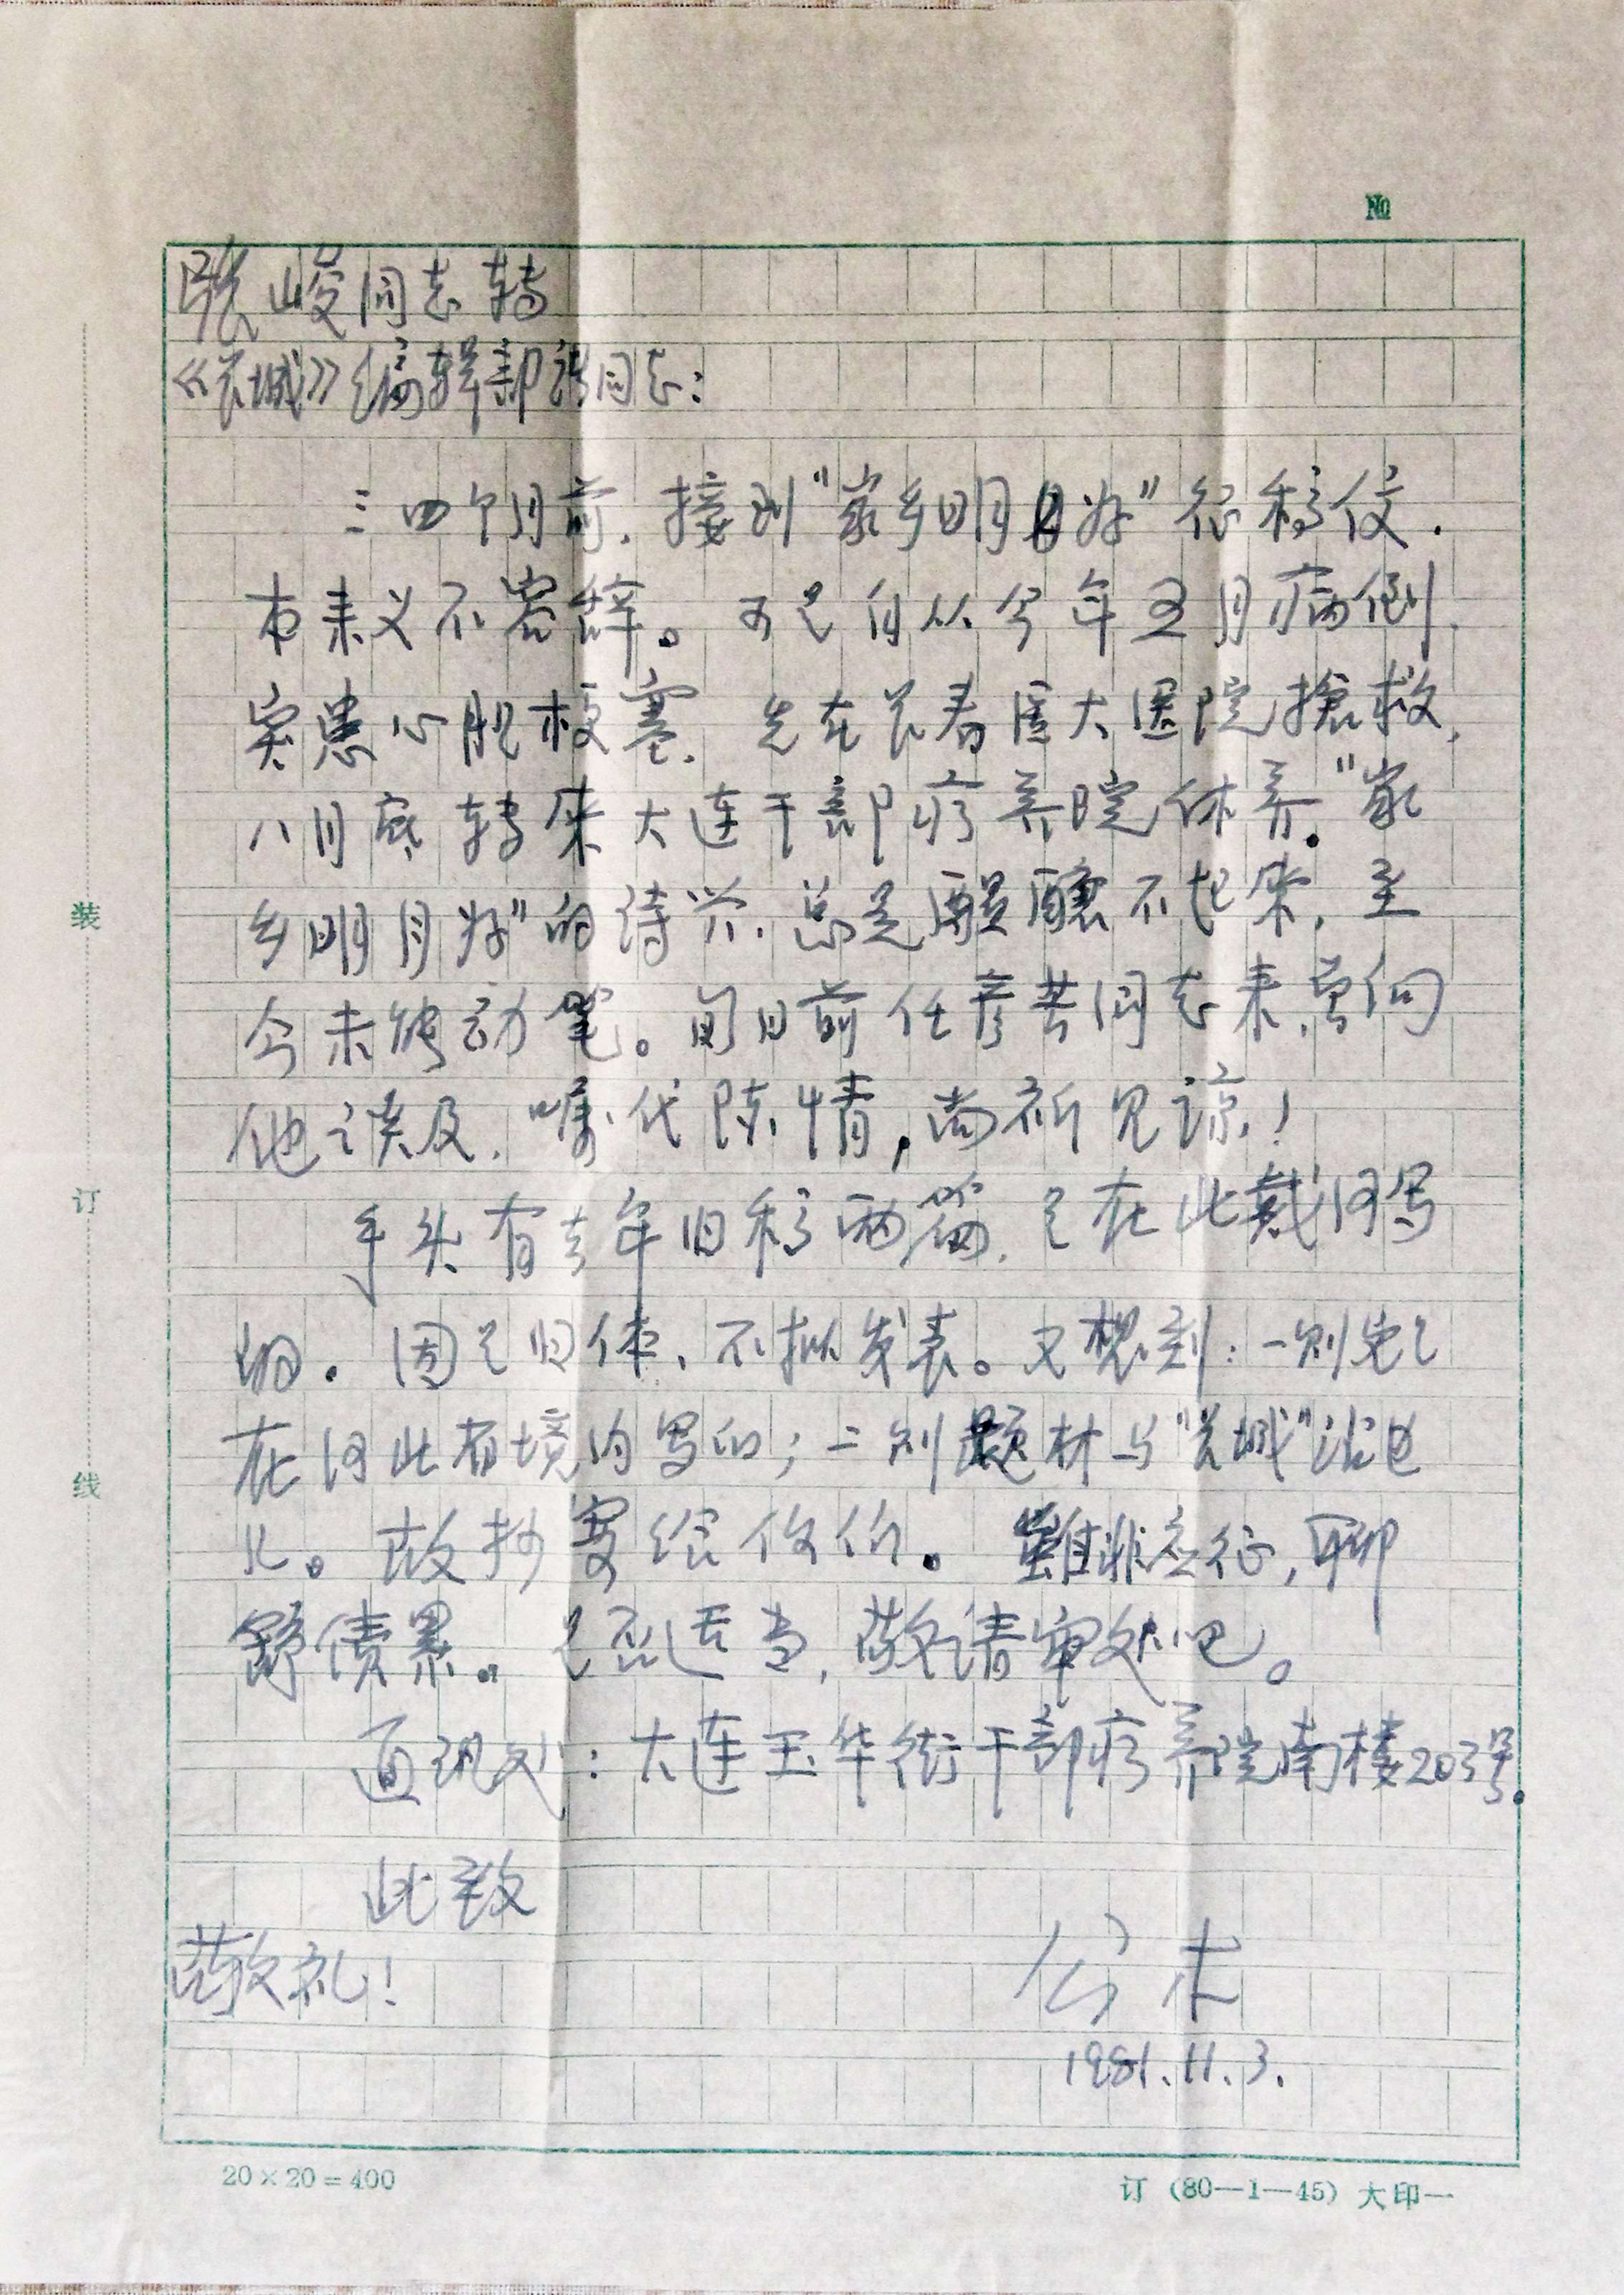 №
张峻同志转
《长城》编辑部诸同志:
三四个月前，接到"家乡明月好"征稿信.
本来义不容辞。可是自从今年五月病倒，
突患心肌梗塞，先在长春医大医院搶救，
八月底转来大连干部疗养院休养."家
乡明月好"的诗兴，总是醖釀不起来，至
今未能动笔。旬日前任彦芳同志来，曾向
他谈及，嘱代陈情，尚祈见谅!
手头有去年旧稿两篇，是在北戴河写
的. 因是旧体、不拟发表。又想到:一则它是
在河北省境内写的;二则题材与"长城"沾边
儿。故抄寄给你们。雖非应征,聊
舒债累。是否适当,敬请审处吧。
通讯处:大连玉华街干部疗养院南楼203号.
此致
敬礼!
公木
1981.11.3.
装
订
线
20×20=400
订(80—1—45)大印一